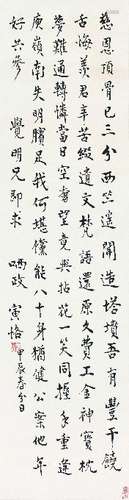 慈恩頂骨已三分西竺遙聞造塔墳吾有豐干饒
舌悔羨君辛苦綴遺文梵語還原久費工金神寶枕
夢難通轉憐當日空奢望竟與拈花一笑同握手重逢
庾嶺南失明臏足我何堪儻能八十身猶健公案他年
好共參 覺明兄即求
哂政 寅恪
甲辰春分日